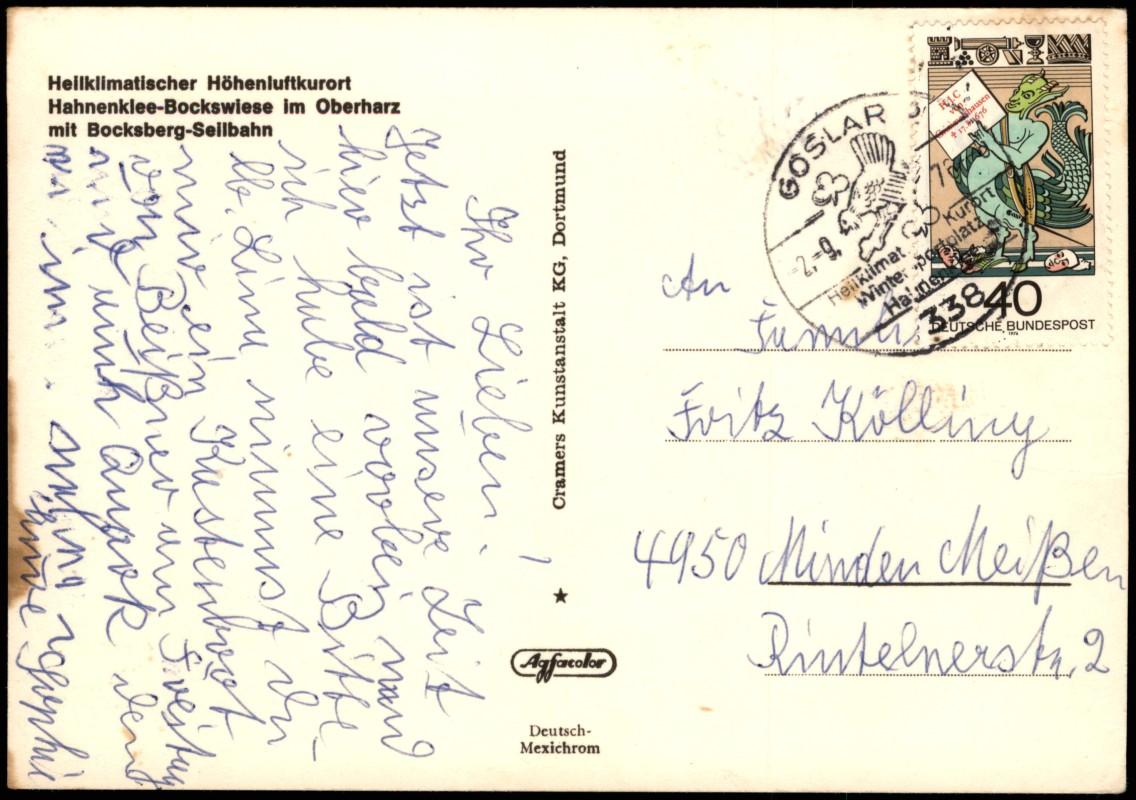 Heilklimatischer Höhenluftkurort
Hahnenklee-Bockswiese im Oberharz
mit Bocksberg-Seilbahn
Ihr Lieben!
Jetzt ist unsere Zeit
hier bald vorbei und
ich habe eine Bitte
lb. Lina nimmst du
mir ein Kastenbrot
von Beißner am Freitag
mit und Quark
Cramers Kunstanstalt KG, Dortmund
Agfacolor
Deutsch-
Mexichrom
GOSLAR
-2.-9.
76
Heilklimat. Kurort
Wintersportplatz
338
H J C
von
Grimmelshausen
† 17.8.1676
40
DEUTSCHE BUNDESPOST
1976
An
Famili
Fritz Kölling
4950 Minden Meißen
Rintelnerstr. 2